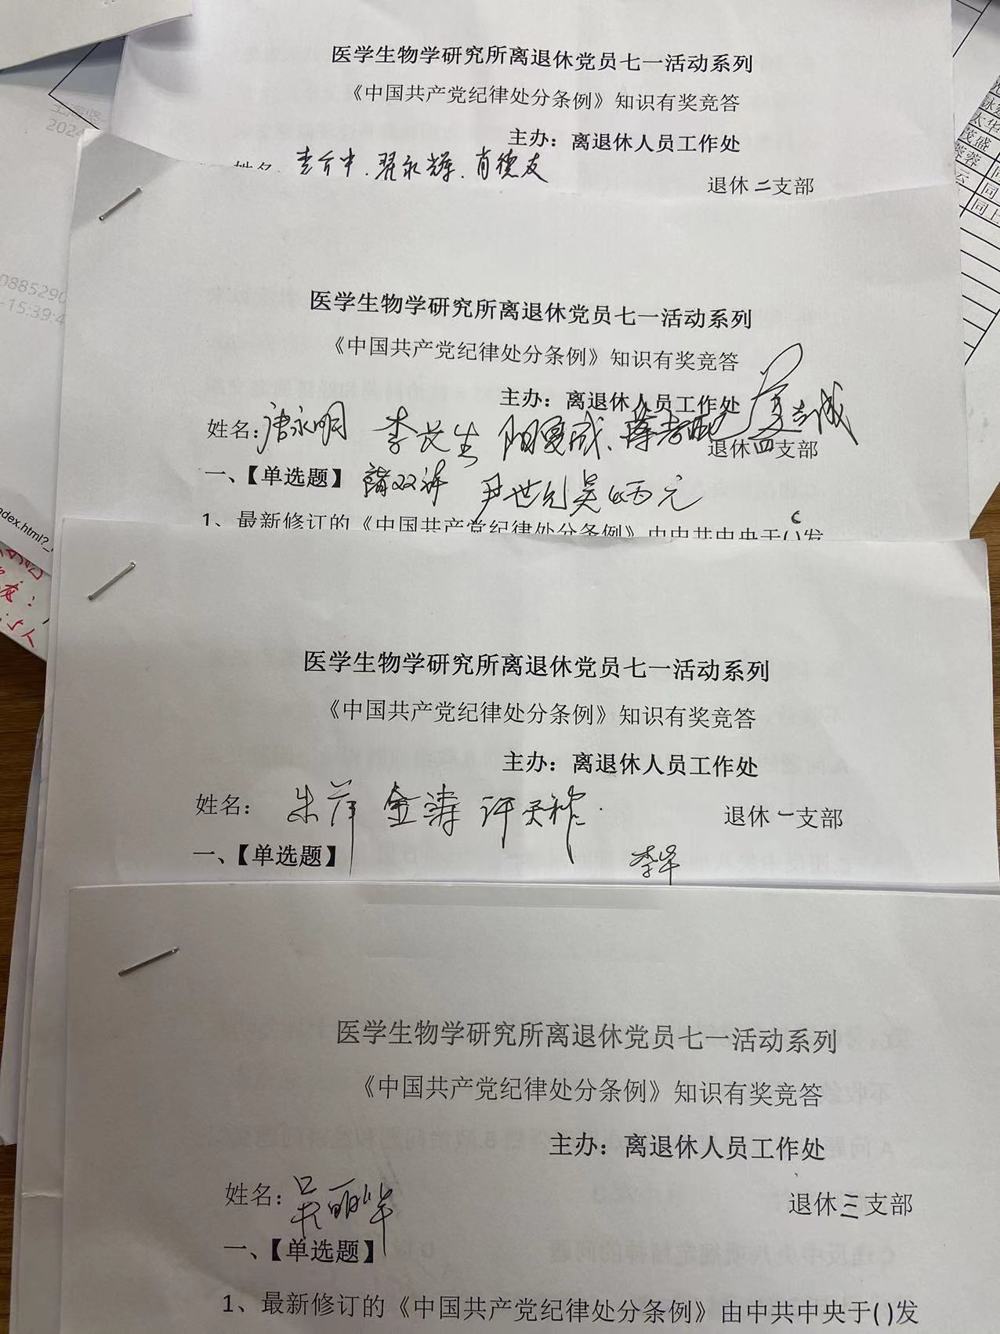 医学生物学研究所离退休党员七一活动系列
《中国共产党纪律处分条例》知识有奖竞答
主办：离退休人员工作处
姓名：李介中、翟永辉、肖德友
退休二支部
医学生物学研究所离退休党员七一活动系列
《中国共产党纪律处分条例》知识有奖竞答
主办：离退休人员工作处
姓名：唐永明 李长生
退休四支部
一、【单选题】
1、最新修订的《中国共产党纪律处分条例》由中共中央于(C)发
医学生物学研究所离退休党员七一活动系列
《中国共产党纪律处分条例》知识有奖竞答
主办：离退休人员工作处
姓名：朱萍 金涛 许天祚
退休一支部
一、【单选题】 李华
医学生物学研究所离退休党员七一活动系列
《中国共产党纪律处分条例》知识有奖竞答
主办：离退休人员工作处
姓名：吴丽华
退休三支部
一、【单选题】
1、最新修订的《中国共产党纪律处分条例》由中共中央于( )发
0885290
-15:39:4
ndex.html?_
茂盛